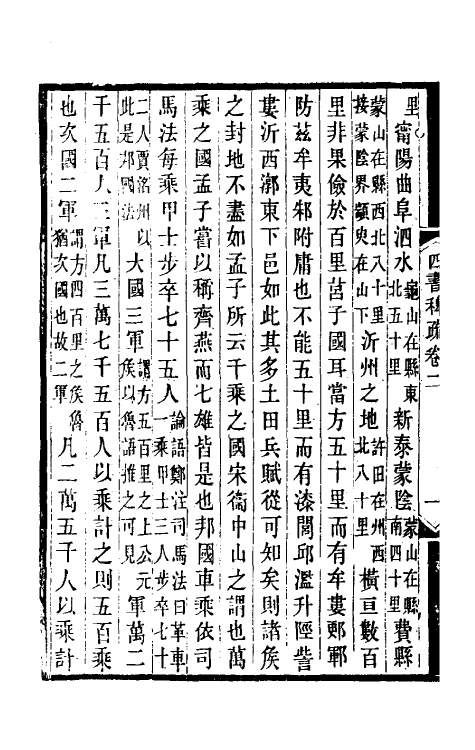 四書稗疏卷二 一
里甯陽曲阜泗水龜山在縣東北五十里新泰蒙陰蒙山在縣南四十里費縣
蒙山在縣西北八十里接蒙陰界顓臾在山下沂州之地許田在州西北八十里橫亘數百
里非果儉於百里莒子國耳當方五十里而有牟婁鄭鄆
防茲牟夷邾附庸也不能五十里而有漆閭邱濫升陘訾
婁沂西漷東下邑如此其多土田兵賦從可知矣則諸侯
之封地不盡如孟子所云千乘之國宋衞中山之謂也萬
乘之國孟子嘗以稱齊燕而七雄皆是也邦國車乘依司
馬法每乘甲士步卒七十五人論語鄭注司馬法曰革車一乘甲士三人步卒七十
二人賈洛州以此是邦國法大國三軍謂方五百里之上公元侯以魯語推之可見軍萬二
千五百人三軍凡三萬七千五百人以乘計之則五百乘
也次國二軍謂方四百里之侯魯猶次國也故二軍凡二萬五千人以乘計